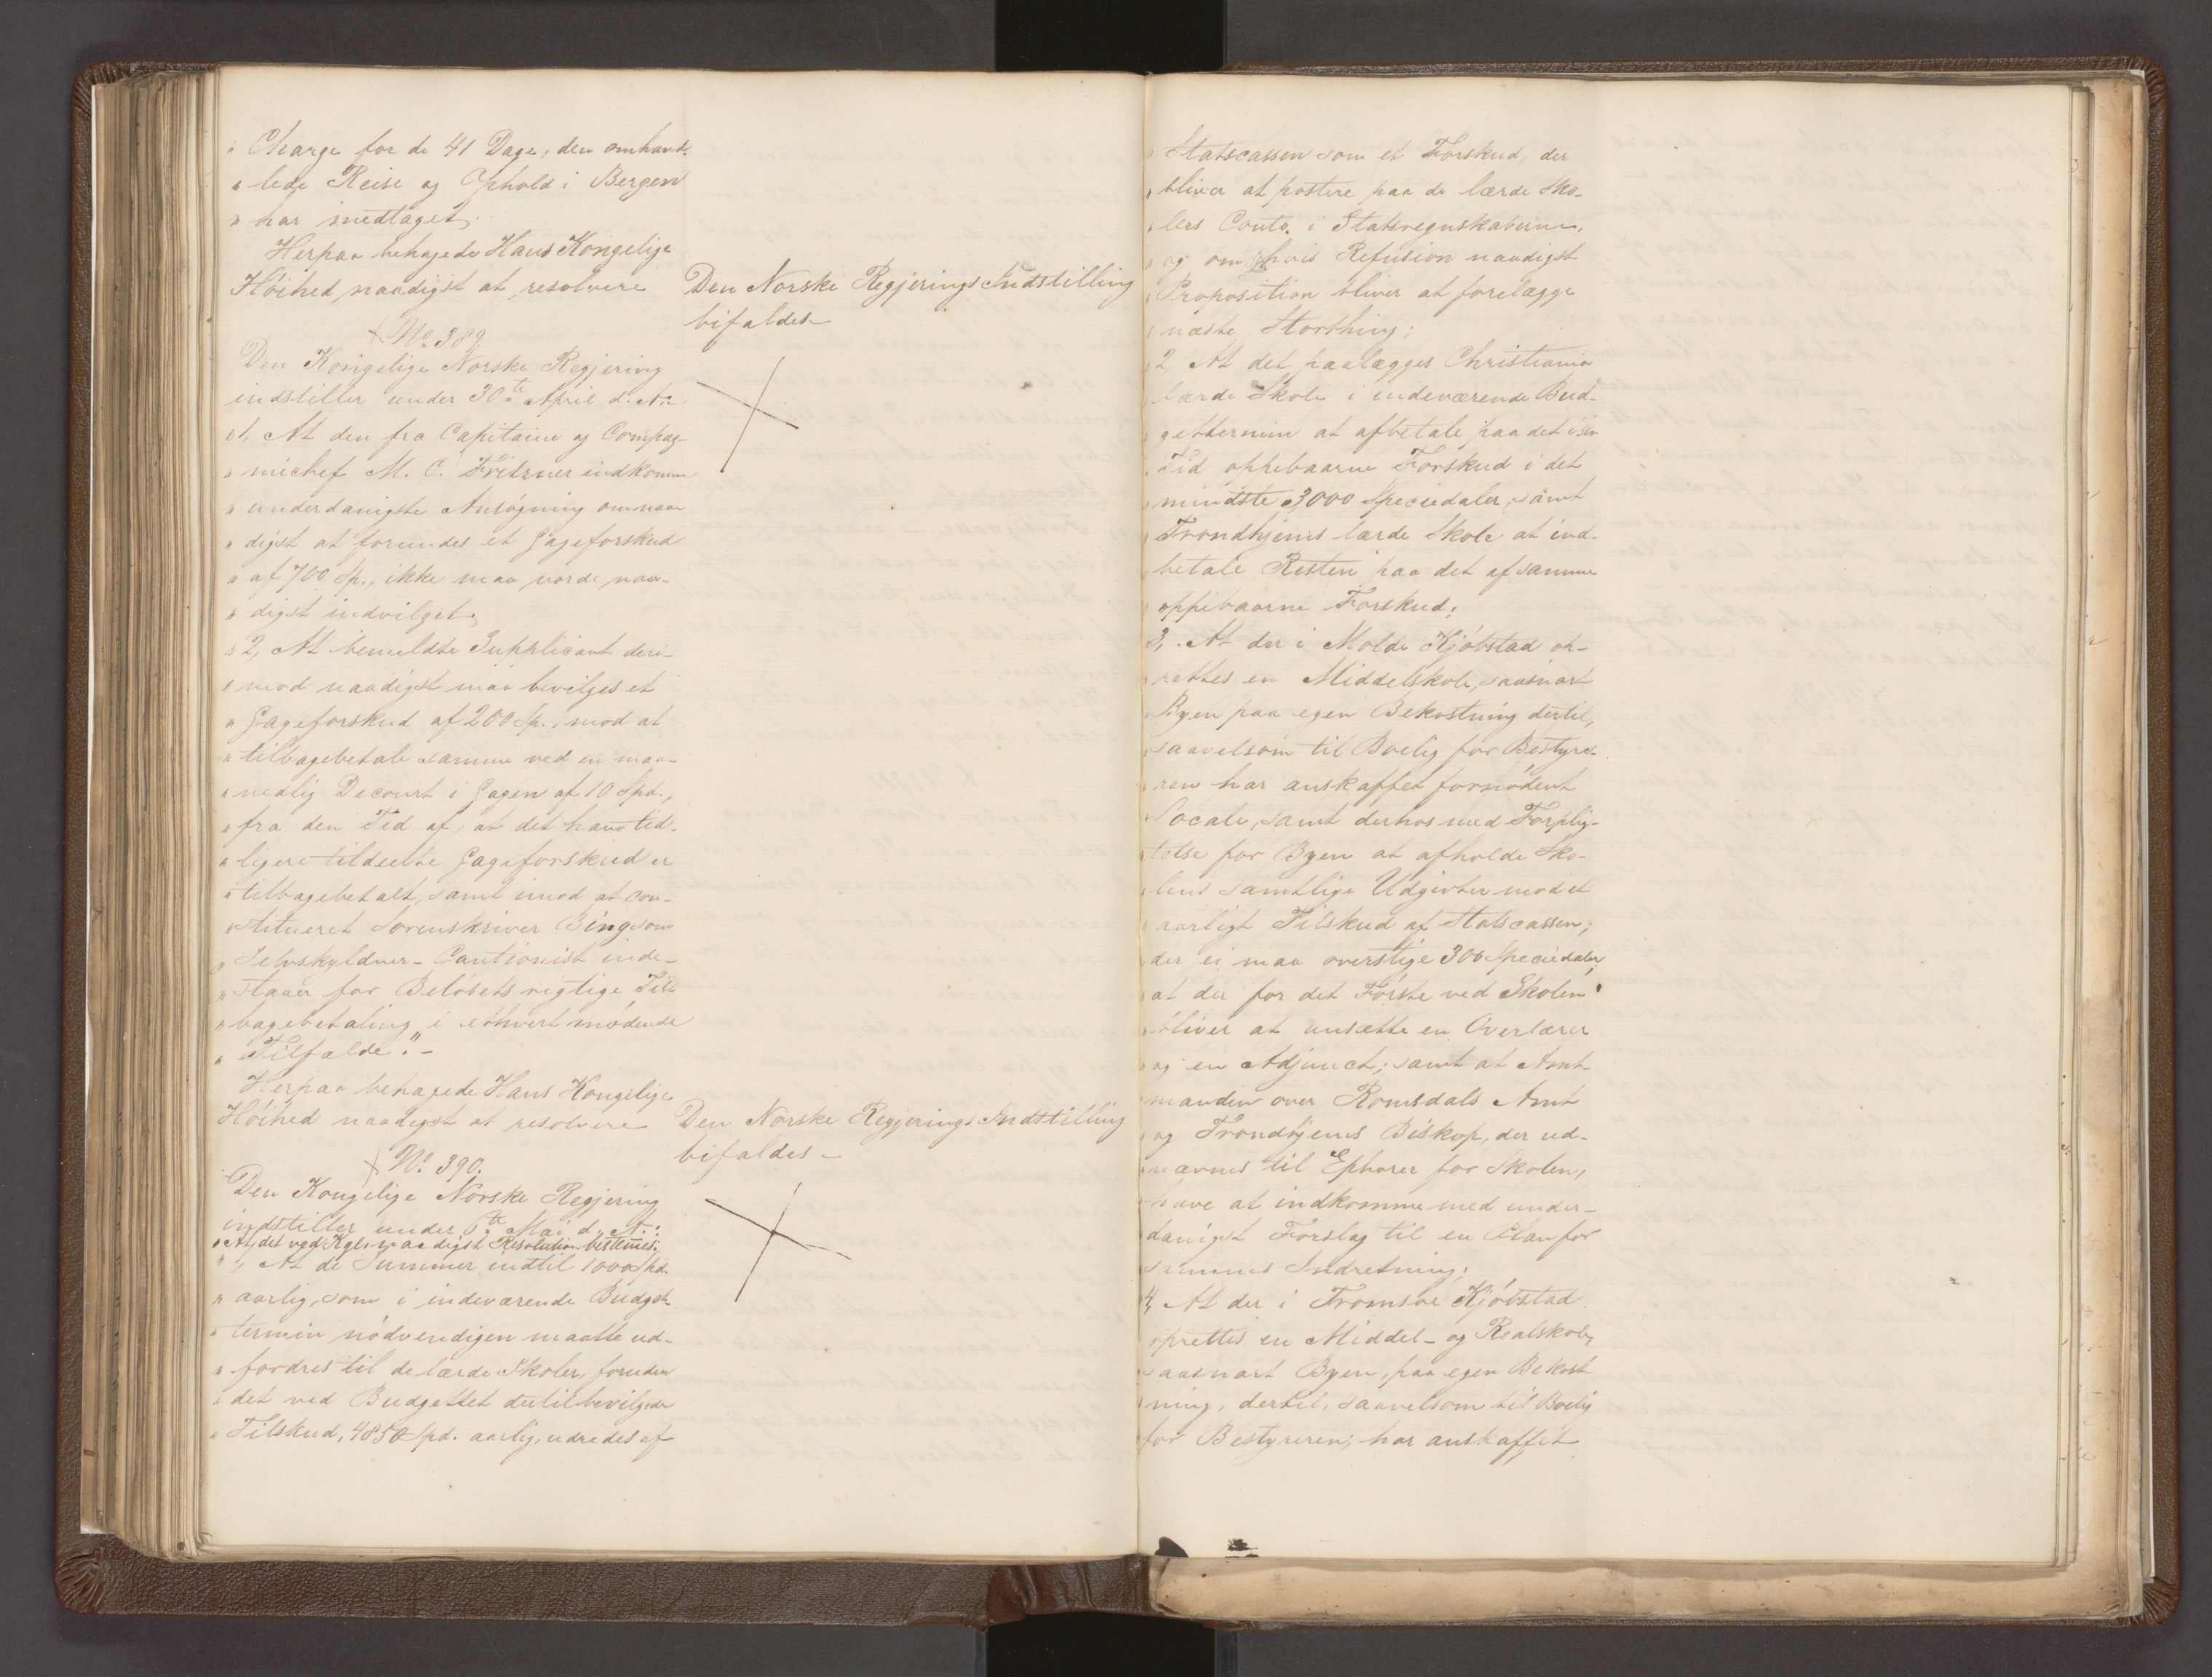 " Charge for de 41 Dage, den omhand-
" lede Reise og Ophold i Bergen
" har medtaget.
Herpaa behagede Hans Kongelige
Höihed naadigst at resolvere
Den Norske Regjerings Indstilling
bifaldes
No 389.
Den Kongelige Norske Regjering
indstiller under 30te April d. A.
" 1, At den fra Capitaine og Compag-
" nichef M. C. Fritzner indkomne
" underdanigste Ansögning om naa-
" digst at forundes et Gageforskud
" af 700 Sp., ikke maa vorde naa-
" digst indvilget,
" 2, At bemeldte Supplicant deri-
" mod naadigst maa bevilges et
" Gageforskud af 200 Sp., mod at
" tilbagebetale samme ved en maa-
" nedlig Decourt i Gagen af 10 Spd.,
" fra den Tid af, at det ham tid-
" ligere tildeelte Gageforskud er
" tilbagebetalt, samt imod at con-
" stitueret Sorenskriver Bing som
" Selvskyldner-Cautionist inde-
" staaer for Belöbets rigtige Til-
" bagebetaling i ethvert mödende
" Tilfælde."-
Herpaa behagede Hans Kongelige
Höihed naadigst at resolvere
Den Norske Regjerings Indstilling
bifaldes-
No. 390.
Den Kongelige Norske Regjering
indstiller under 6te Mai d. A.:
" At det ved Kgl. naadigst Resolution bestemmes:
" 1, At de Summer indtil 1000 Spd.
" aarlig, som i indeværende Budget-
" termin nödvendigen maatte ud-
" fordres til de lærde Skoler, foruden
" det ved Budgettet dertil bevilgede
" Tilskud, 4850 Spd. aarlig, udredes af
" Statscassen som et Forskud, der
" bliver at postere paa de lærde Sko-
" lers Conto i Statsregnskaberne,
" og om hvis Refusion naadigst
" Proposition bliver at forelægge
" næste Storthing;
" 2, At det paalægges Christiania
" lærde Skole i indeværende Bud-
" gettermin at afbetale paa det i sin
" Tid oppebaarne Forskud i det
" mindste 3000 Speciedaler, samt
" Trondhjems lærde Skole at ind-
" betale Resten paa det af samme
" oppebaarne Forskud;
" 3, At der i Molde Kjöbstad op-
" rettes en Middelskole, saasnart
" Byen paa egen Bekostning dertil,
" saavelsom til Boelig for Bestyre-
" ren har anskaffet fornödent
" Locale, samt derhos med Forplig-
" telse for Byen at afholde Sko-
" lens samtlige Udgivter mod et
" aarligt Tilskud af Statscassen,
" der ei maa overstige 300 Speciedaler;
" at der for det Förste ved Skolen
" bliver at ansætte en Overlærer
" og en Adjunct; samt at Amt-
" manden over Romsdals Amt
" og Trondhjems Biskop, der ud-
" nævnes til Ephorer for Skolen,
" have at indkomme med under-
" danigst Forslag til en Plan for
" sammes Indretning;
" 4, At der i Tromsöe Kjöbstad
" oprettes en Middel- og Realskole,
" saasnart Byen, paa egen Bekost-
" ning, dertil, saavelsom til Boelig
" for Bestyreren, har anskaffet